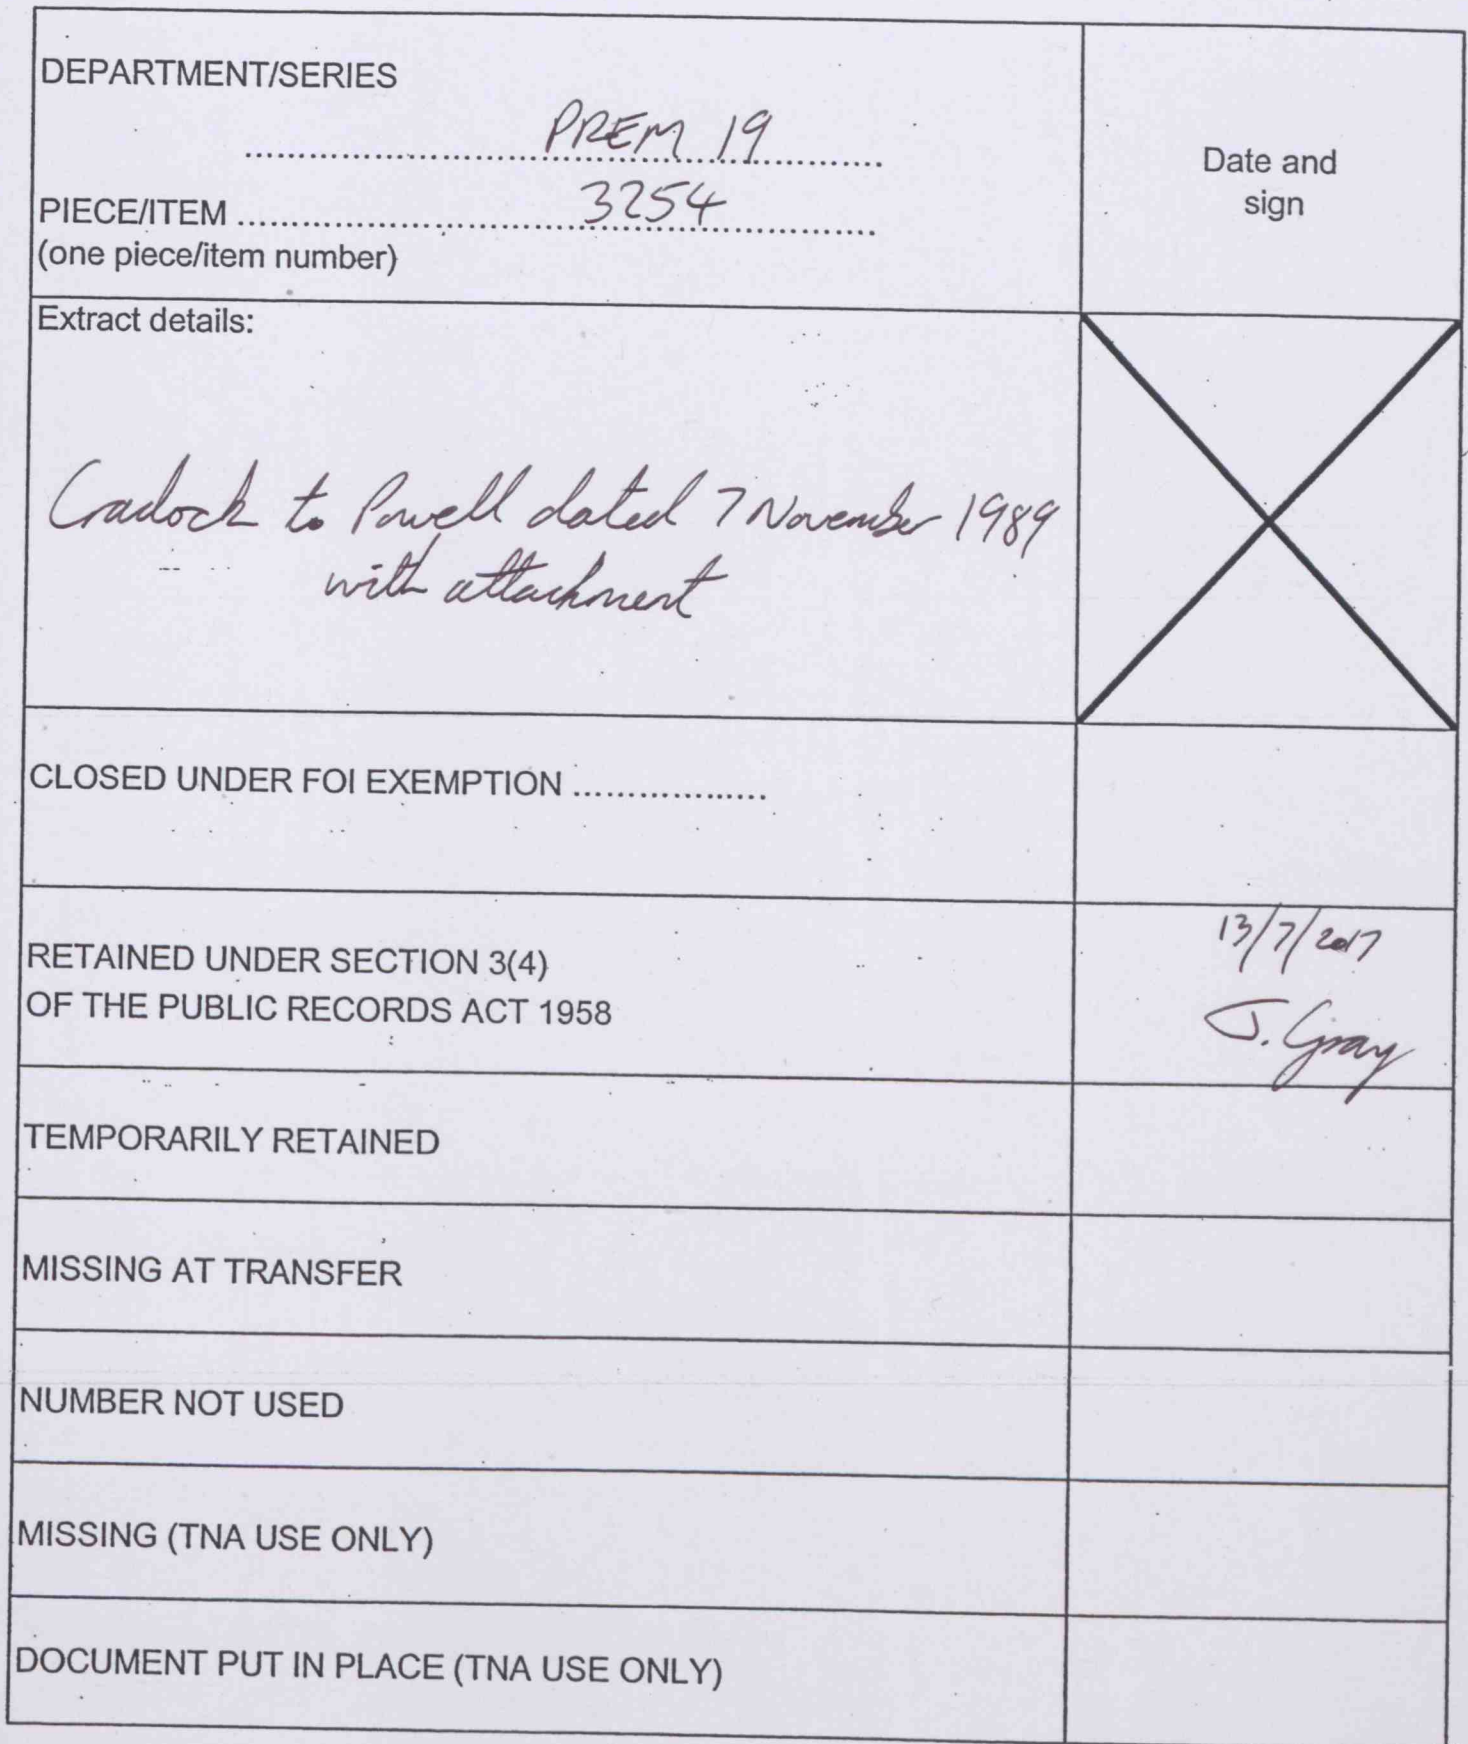 DEPARTMENT/SERIES
PREM 19
Date and
sign
PIECE/ITEM ........................................ 3254
(one piece/item number)
Extract details:
Cradock to Powell dated 7 November 1989
with attachment
CLOSED UNDER FOI EXEMPTION ..................
RETAINED UNDER SECTION 3(4)
OF THE PUBLIC RECORDS ACT 1958
13/7/2017
J. Gray
TEMPORARILY RETAINED
MISSING AT TRANSFER
NUMBER NOT USED
MISSING (TNA USE ONLY)
DOCUMENT PUT IN PLACE (TNA USE ONLY)